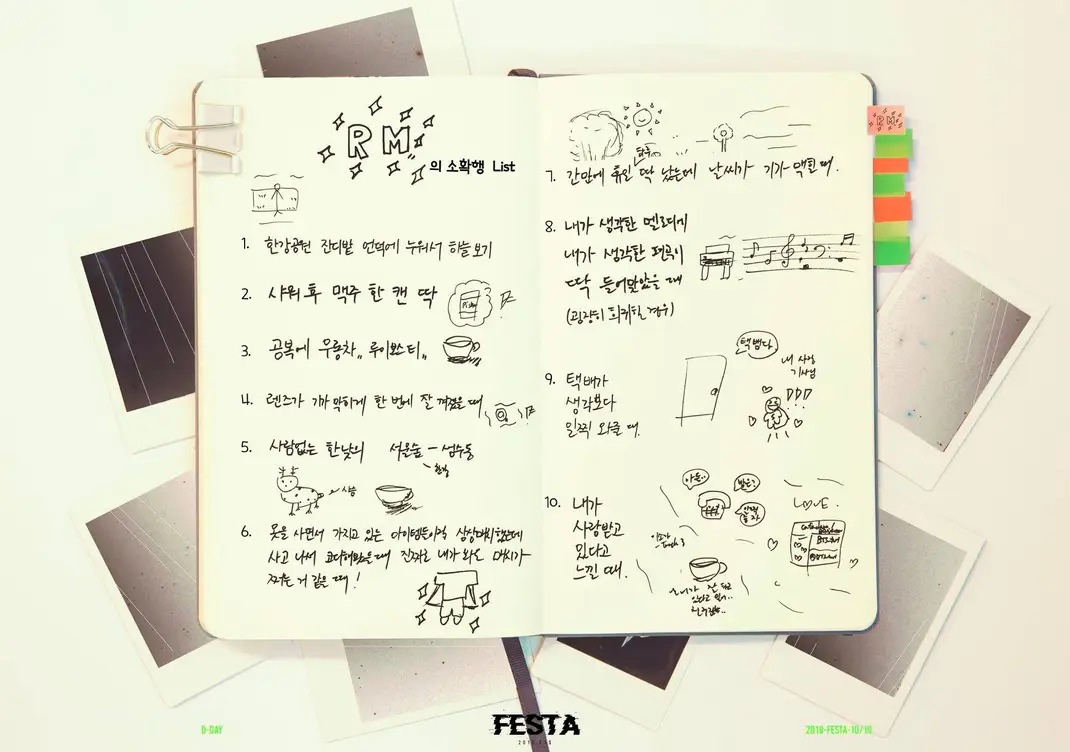 RM
의 소확행 List
1. 한강공원 잔디밭 언덕에 누워서 하늘 보기
2. 샤워 후 맥주 한 캔 딱
3. 공복에 우롱차,, 루이보스 티,,
4. 렌즈가 기가 막히게 한 번에 잘 껴졌을 때
5. 사람없는 한낮의 서울숲 - 성수동
사슴
6. 옷을 사면서 가지고 있는 아이템들이랑 상상매치했는데
사고 나서 코디해봤을 때 진짜로 내가 와꾸 매치가
되는 거 같을 때!
RM
7. 간만에 휴일 딱 났는데 날씨가 기가 맥힐 때.
하루
8. 내가 생각한 멜로디에
내가 생각한 편곡이
딱 들어맞았을 때
(굉장히 희귀한 경우)
9. 택배가
생각보다
일찍 와줄 때.
택뱁니다
내 사랑
기사님
10. 내가
사랑받고
있다고
느낄 때.
아들..
LOVE
D-DAY
FESTA
2018-FESTA-10/10